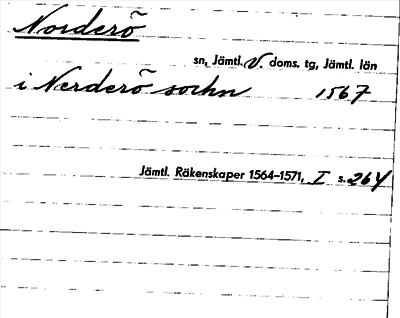 Norderö
sn, Jämtl. V. doms. tg, Jämtl. län
i Nerderö sochn 1567
Jämtl. Räkenskaper 1564–1571, I s. 264